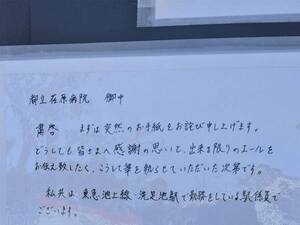 都立荏原病院 御中
粛啓 まずは突然のお手紙をお詫び申し上げます。
どうしても皆さまへ感謝の思いと、出来る限りのエールを
お伝え致したく、こうして筆を執らせていただいた次第です。
私共は、東急池上線・洗足池駅で勤務をしている駅係員で
ございます。